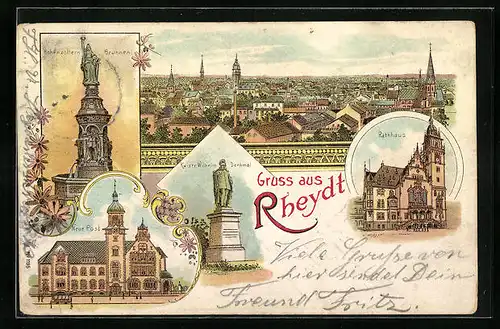 Hohenzollern Brunnen
Rathhaus
Kaiser Wilhelm Denkmal
Gruss aus
Rheydt
Neue Post
Viele Grüße von
hier sendet Dein
Freund Fritz.